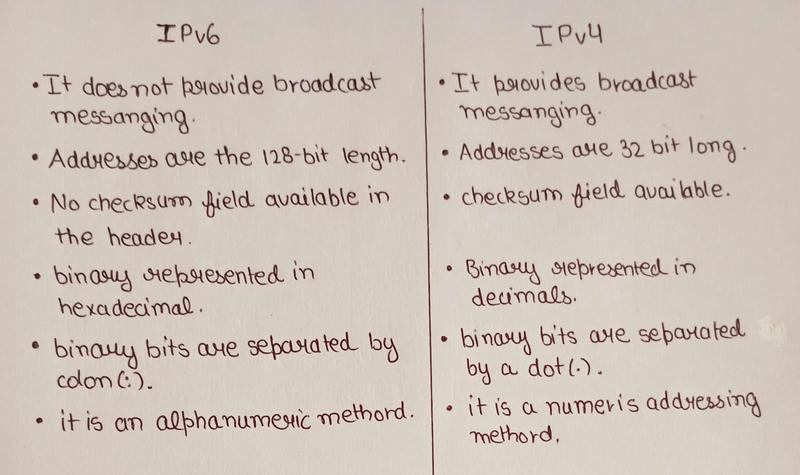 IPv6
• It does not provide broadcast
messanging.
• Addresses are the 128-bit length.
• No checksum field available in
the header.
• binary represented in
hexadecimal.
• binary bits are separated by
colon(:).
• it is an alphanumeric methord.
IPv4
• It provides broadcast
messanging.
• Addresses are 32 bit long.
• checksum field available.
• Binary represented in
decimals.
• binary bits are separated
by a dot(.).
• it is a numeris addressing
methord.